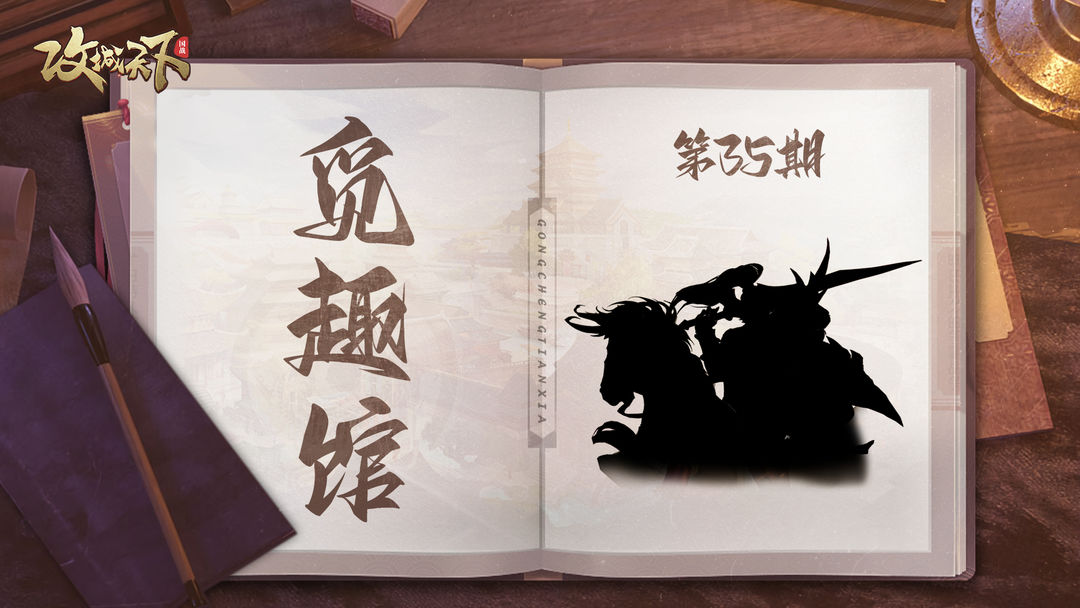 攻城天下
国战
觅趣馆
第35期
GONGCHENGTIANXIA